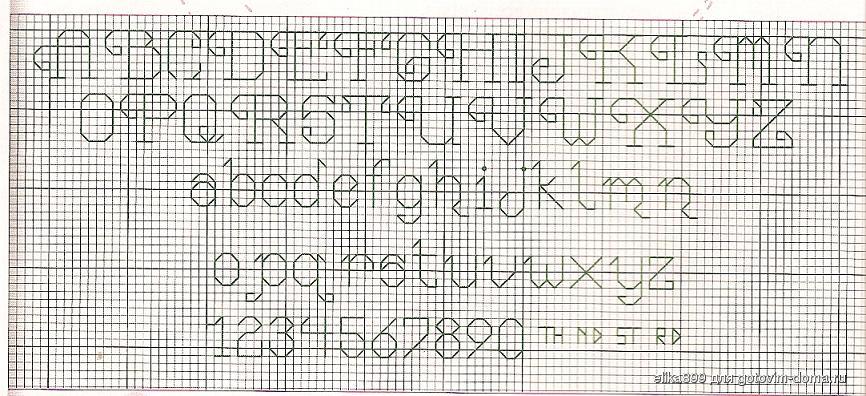 A B C D E F G H I J K L M N
O P Q R S T U V W X Y Z
a b c d e f g h i j k l m n
o p q r s t u v w x y z
1 2 3 4 5 6 7 8 9 0 TH ND ST RD
elka899 для gotovim-doma.ru